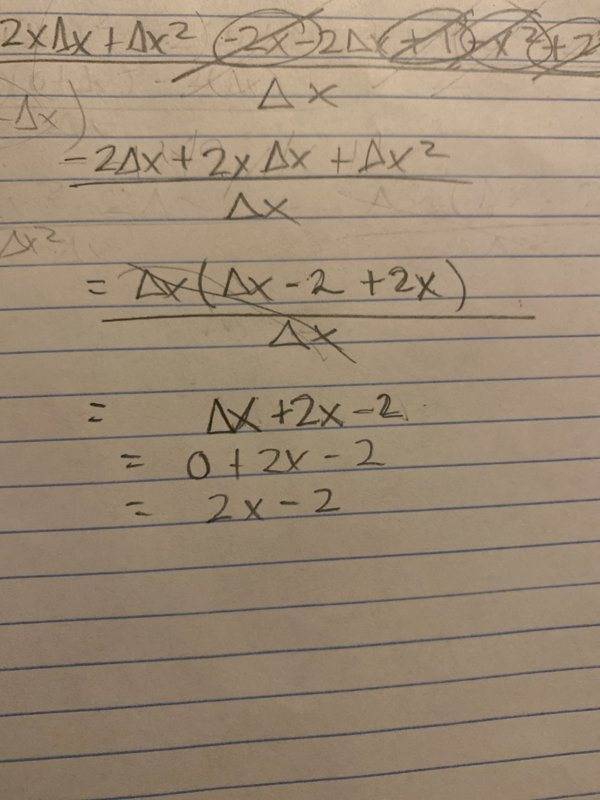 2xΔx + Δx² -2x - 2Δx + 1 - x² + 2
Δx
-Δx)
-2Δx + 2xΔx + Δx²
Δx
Δx²
= Δx(Δx - 2 + 2x)
Δx
= Δx + 2x - 2
= 0 + 2x - 2
= 2x - 2